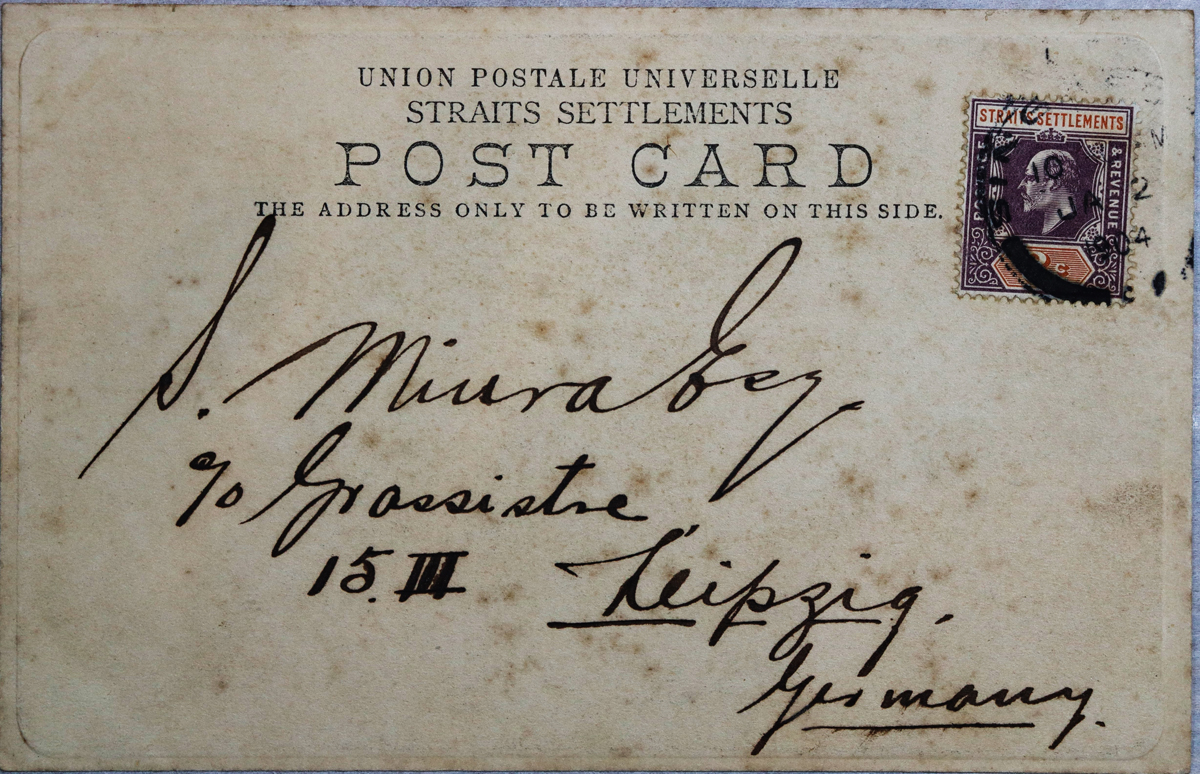 UNION POSTALE UNIVERSELLE
STRAITS SETTLEMENTS
POST CARD
THE ADDRESS ONLY TO BE WRITTEN ON THIS SIDE.
STRAITS SETTLEMENTS
& REVENUE
c
10
JA 2
904
S. Miura Esq
c/o Grassistre
15. III Leipzig.
Germany.